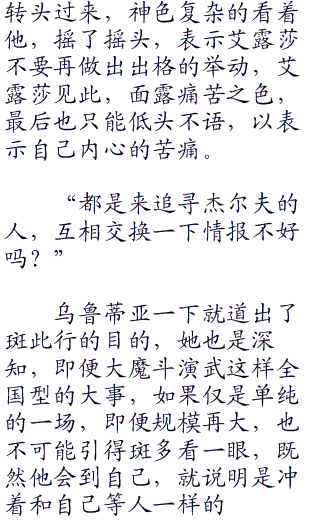 转头过来，神色复杂的看着
他，摇了摇头，表示艾露莎
不要再做出出格的举动，艾
露莎见此，面露痛苦之色，
最后也只能低头不语，以表
示自己内心的苦痛。
“都是来追寻杰尔夫的
人，互相交换一下情报不好
吗？”
乌鲁蒂亚一下就道出了
斑此行的目的，她也是深
知，即便大魔斗演武这样全
国型的大事，如果仅是单纯
的一场，即便规模再大，也
不可能引得斑多看一眼，既
然他会到自己，就说明是冲
着和自己等人一样的